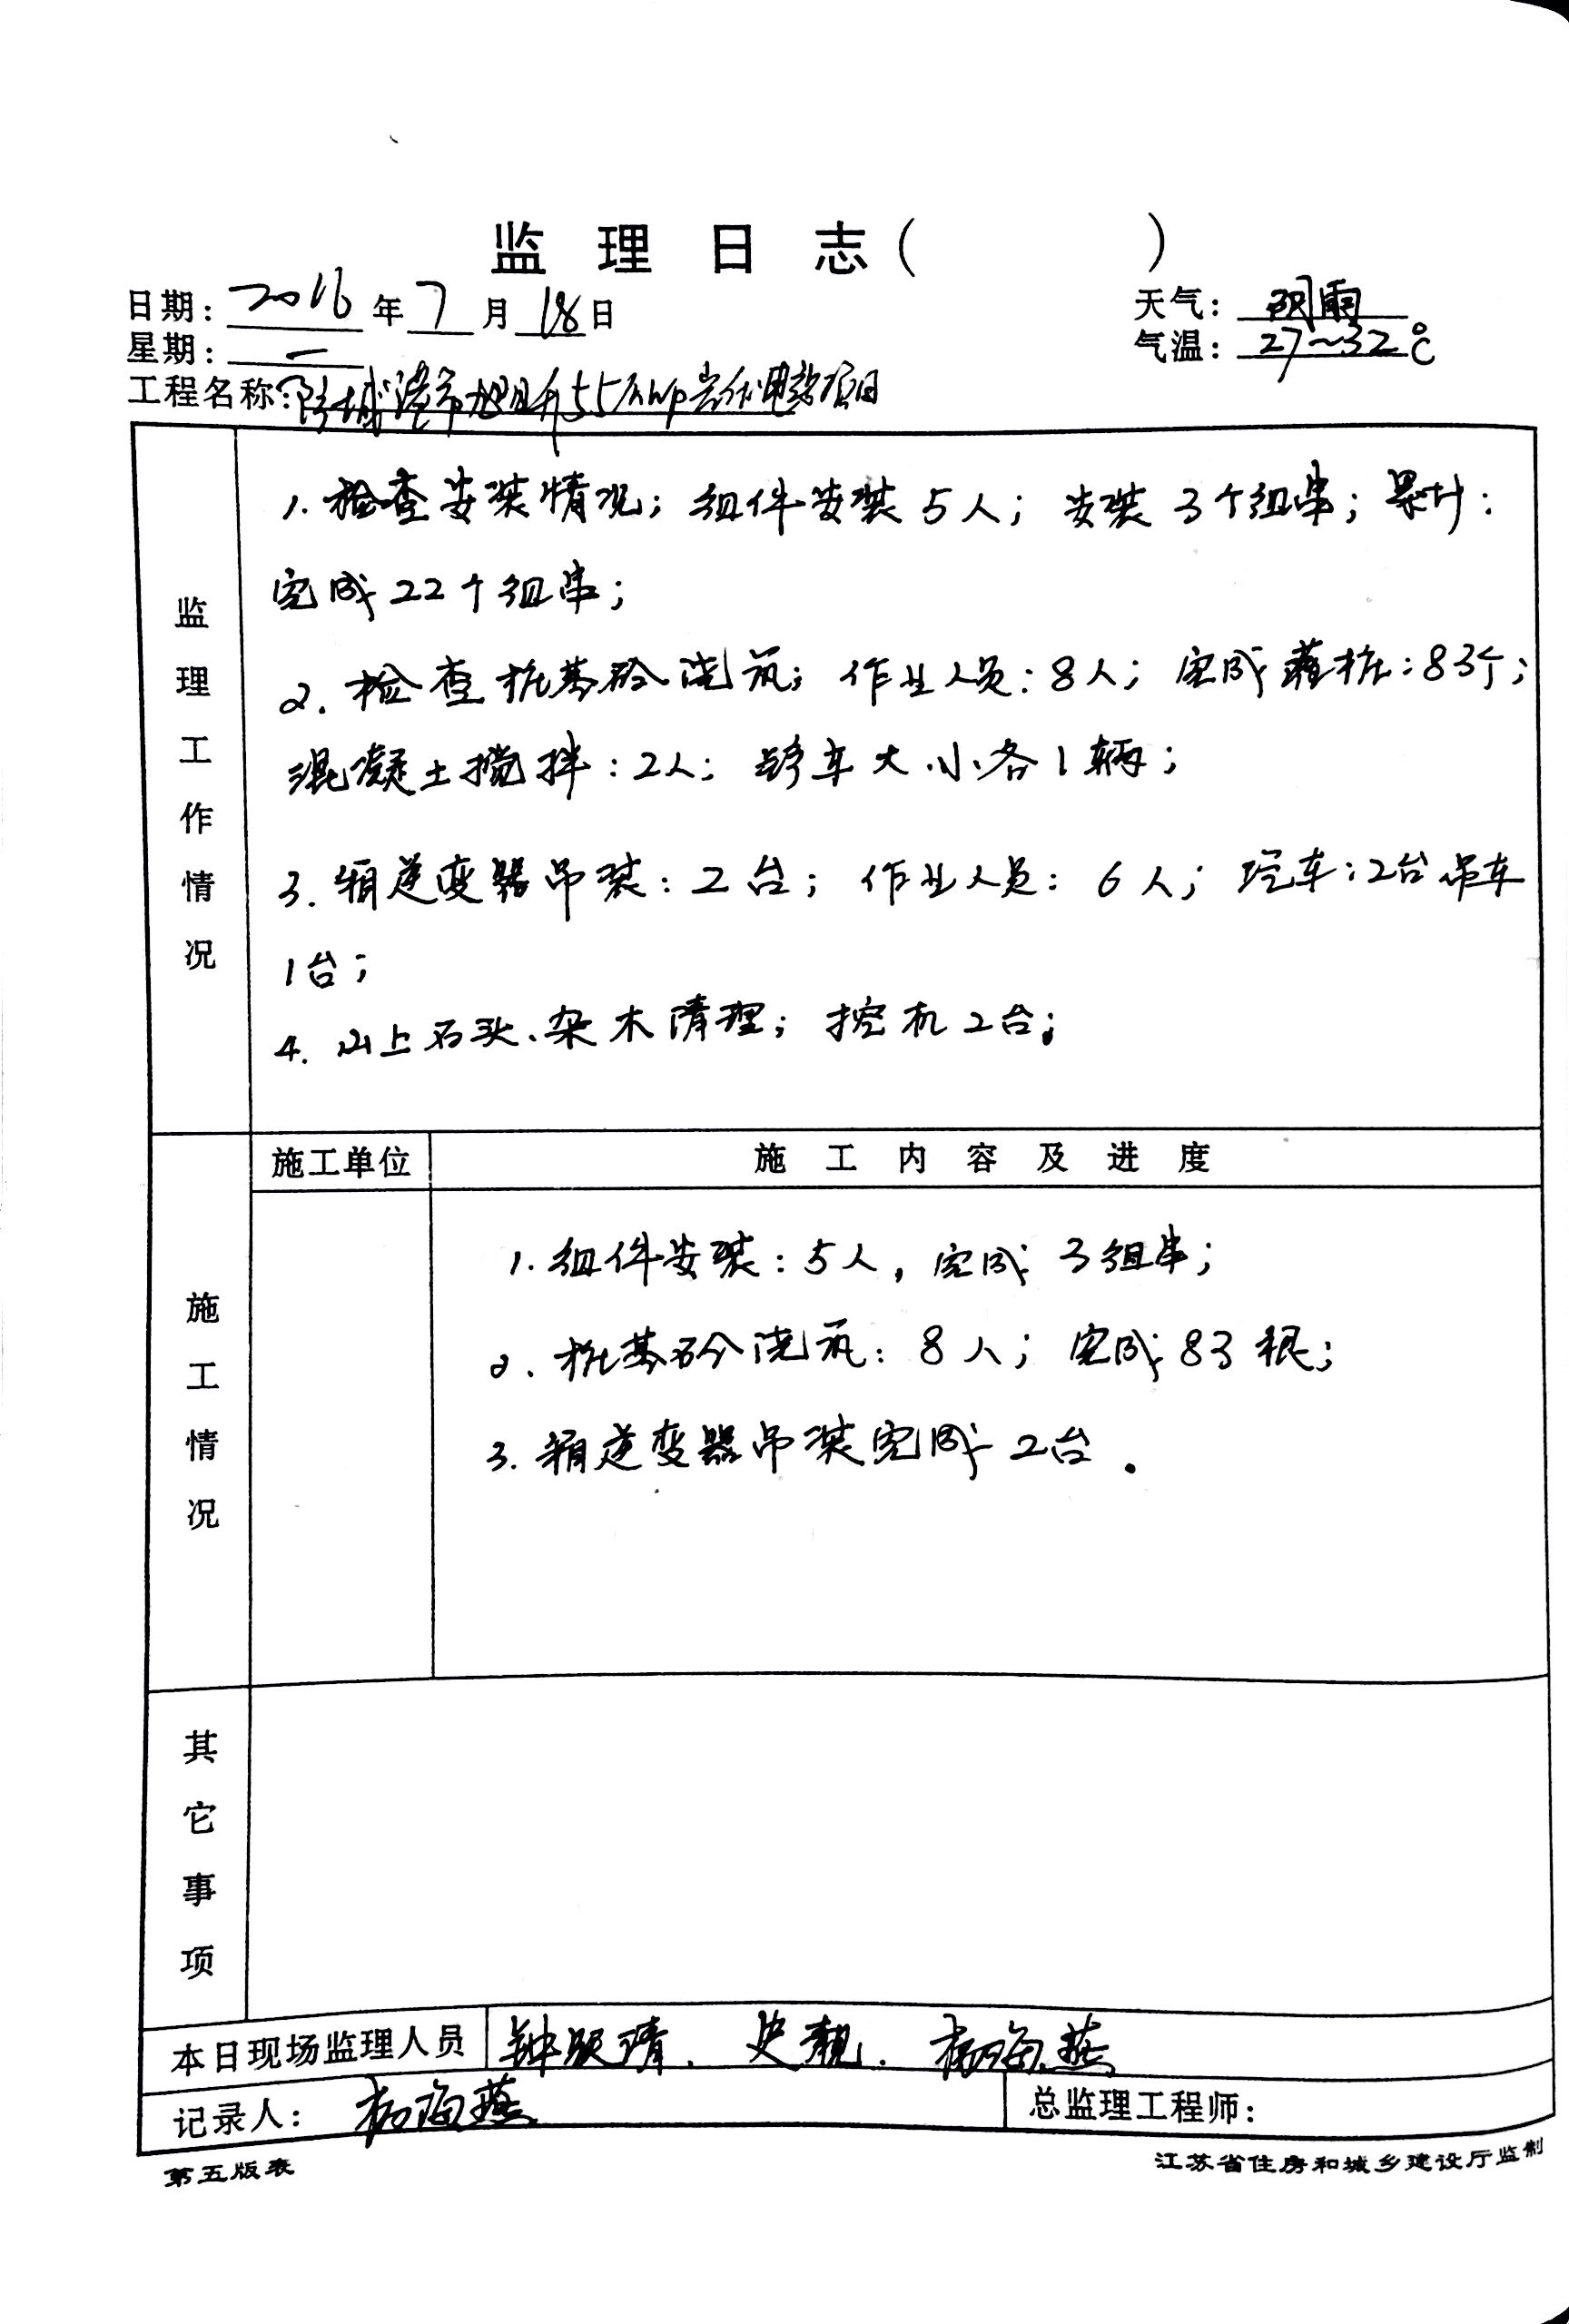 监理日志（ ）
日期：2016年7月18日
天气：阴雨
星期：一
气温：27~32℃
工程名称：防城港市旭升55MWp光伏电站项目
监理工作情况
1. 检查安装情况；组件安装5人；安装3个组串；累计：
完成22个组串；
2. 检查桩基砼浇筑；作业人员：8人；完成灌桩：83个；
混凝土搅拌：2人；铲车大小各1辆；
3. 箱逆变器吊装：2台；作业人员：6人；汽车：2台 吊车
1台；
4. 山上石头、杂木清理；挖机2台；
施工情况
施工单位
施工内容及进度
1. 组件安装：5人，完成3组串；
2. 桩基砼浇筑：8人；完成83根；
3. 箱逆变器吊装完成2台.
其它事项
本日现场监理人员 史靓. 杨海燕
记录人：杨海燕
总监理工程师：
第五版表
江苏省住房和城乡建设厅监制